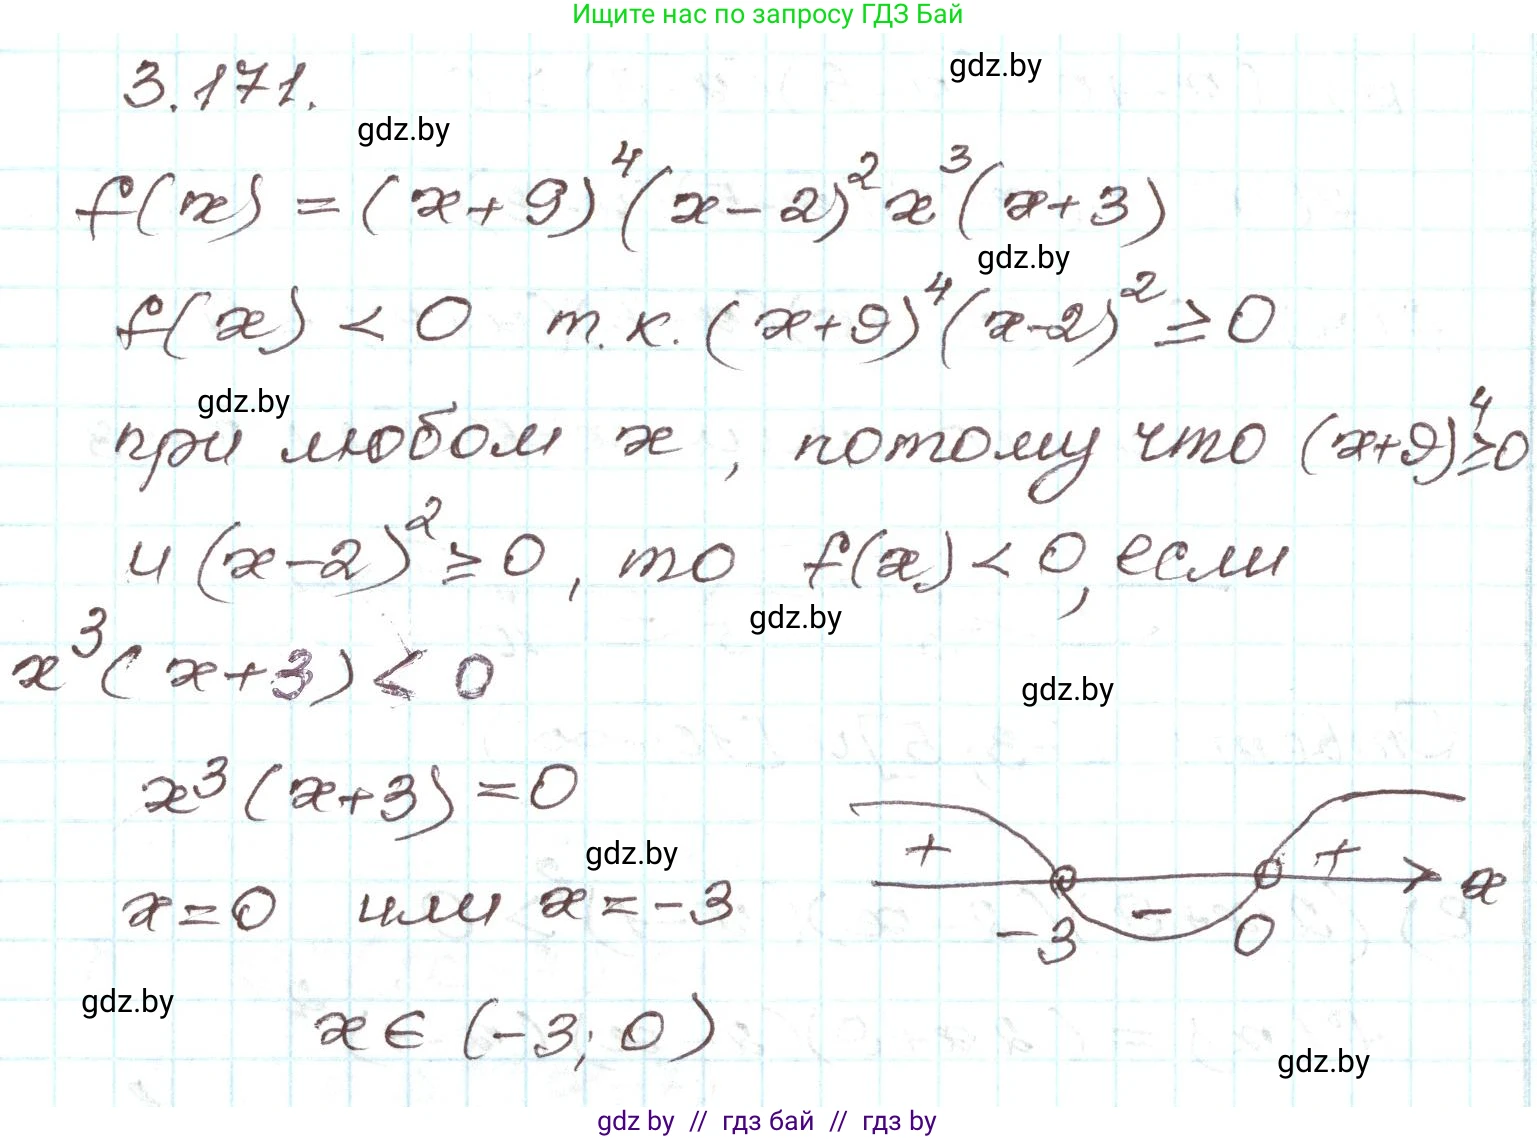 Ищите нас по запросу ГДЗ Бай
gdz.by
3.171.
gdz.by
f(x) = (x+9)⁴(x-2)²x³(x+3)
gdz.by
f(x) < 0 т.к. (x+9)⁴(x-2)² ≥ 0
gdz.by
при любом x, потому что (x+9)⁴≥0
и (x-2)² ≥ 0, то f(x) < 0, если
gdz.by
x³(x+3) < 0
gdz.by
x³(x+3) = 0
gdz.by
+ - + x
-3 0
x=0 или x=-3
gdz.by
x ∈ (-3; 0)
gdz.by
gdz by // гдз бай // гдз by